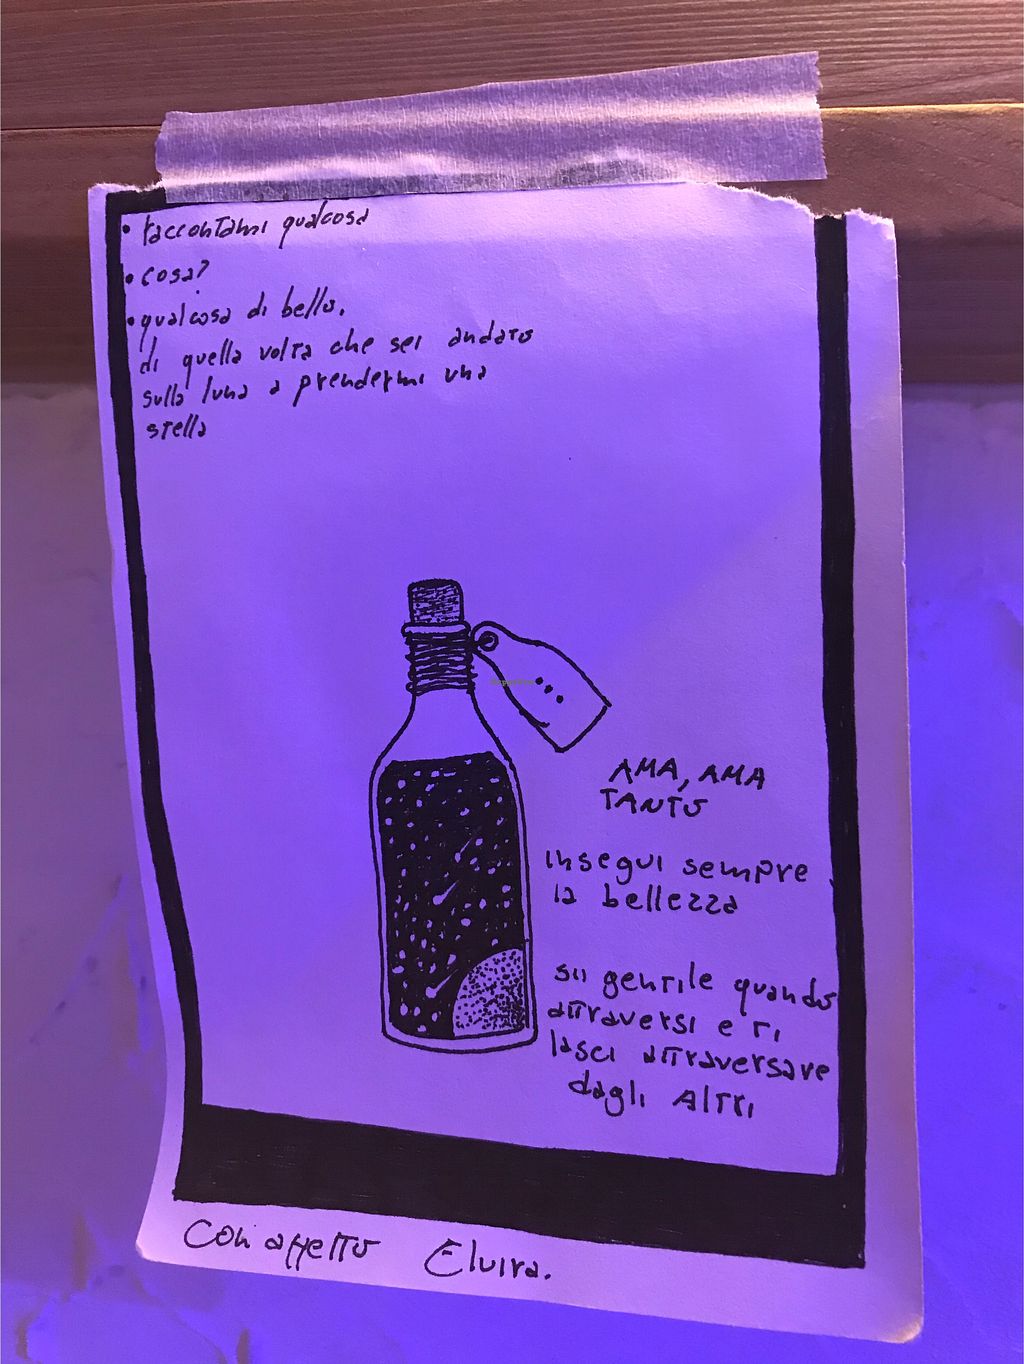 • raccontami qualcosa
• cosa?
• qualcosa di bello.
di quella volta che sei andato
sulla luna a prendermi una
stella
...
AMA, AMA
TANTO
insegui sempre
la bellezza
sii gentile quando
attraversi e ti
lasci attraversare
dagli Altri
Con affetto Elvira.